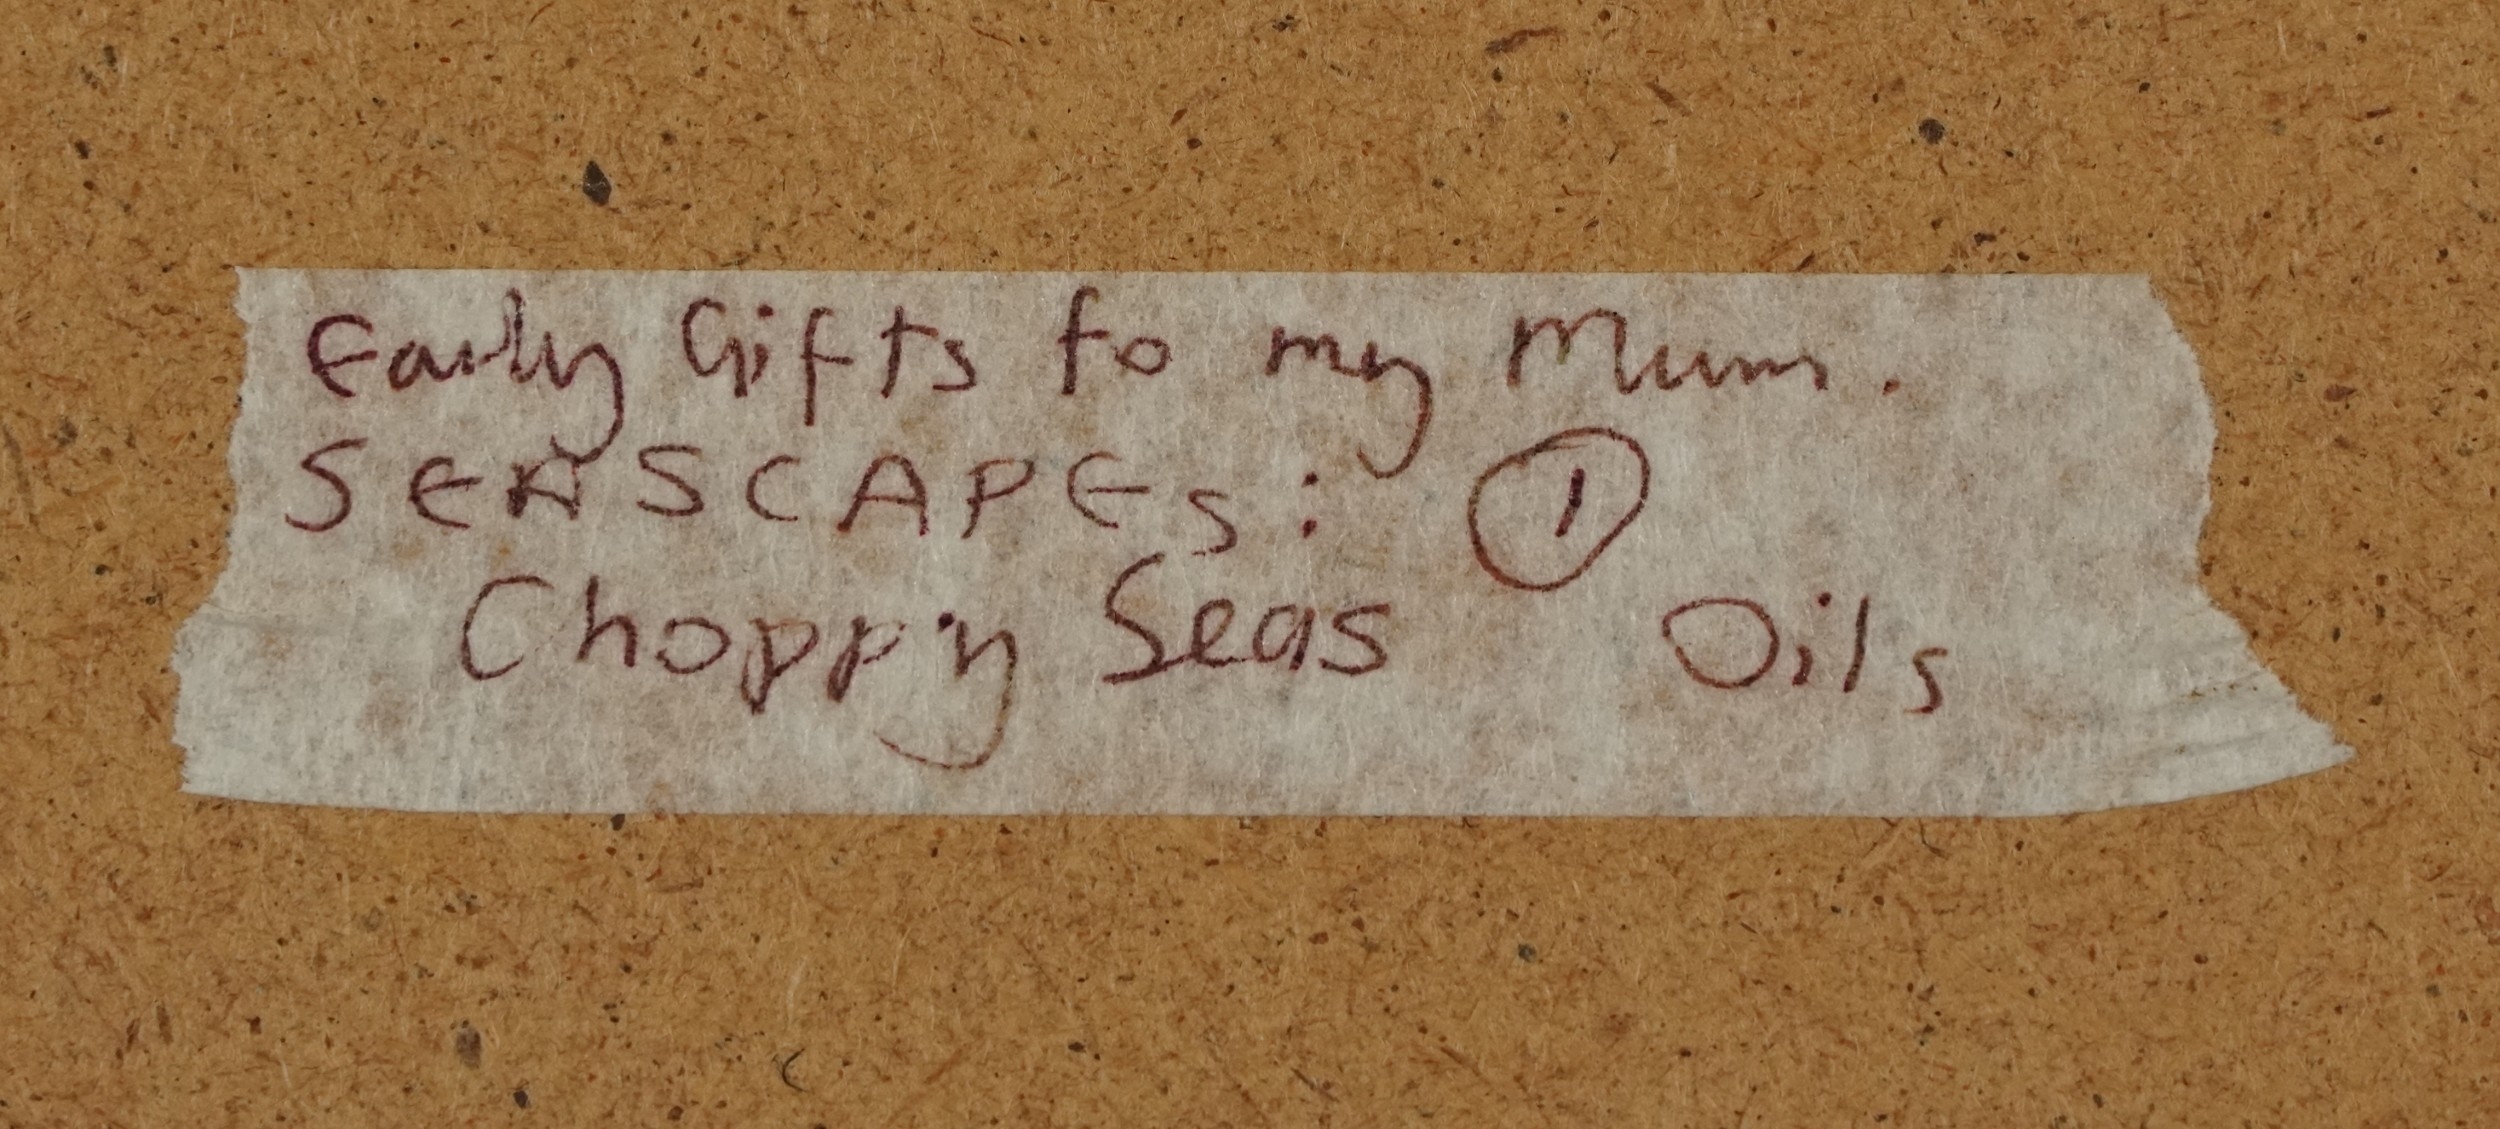 Early Gifts to my Mum.
SEASCAPES: ①
Choppy Seas Oils